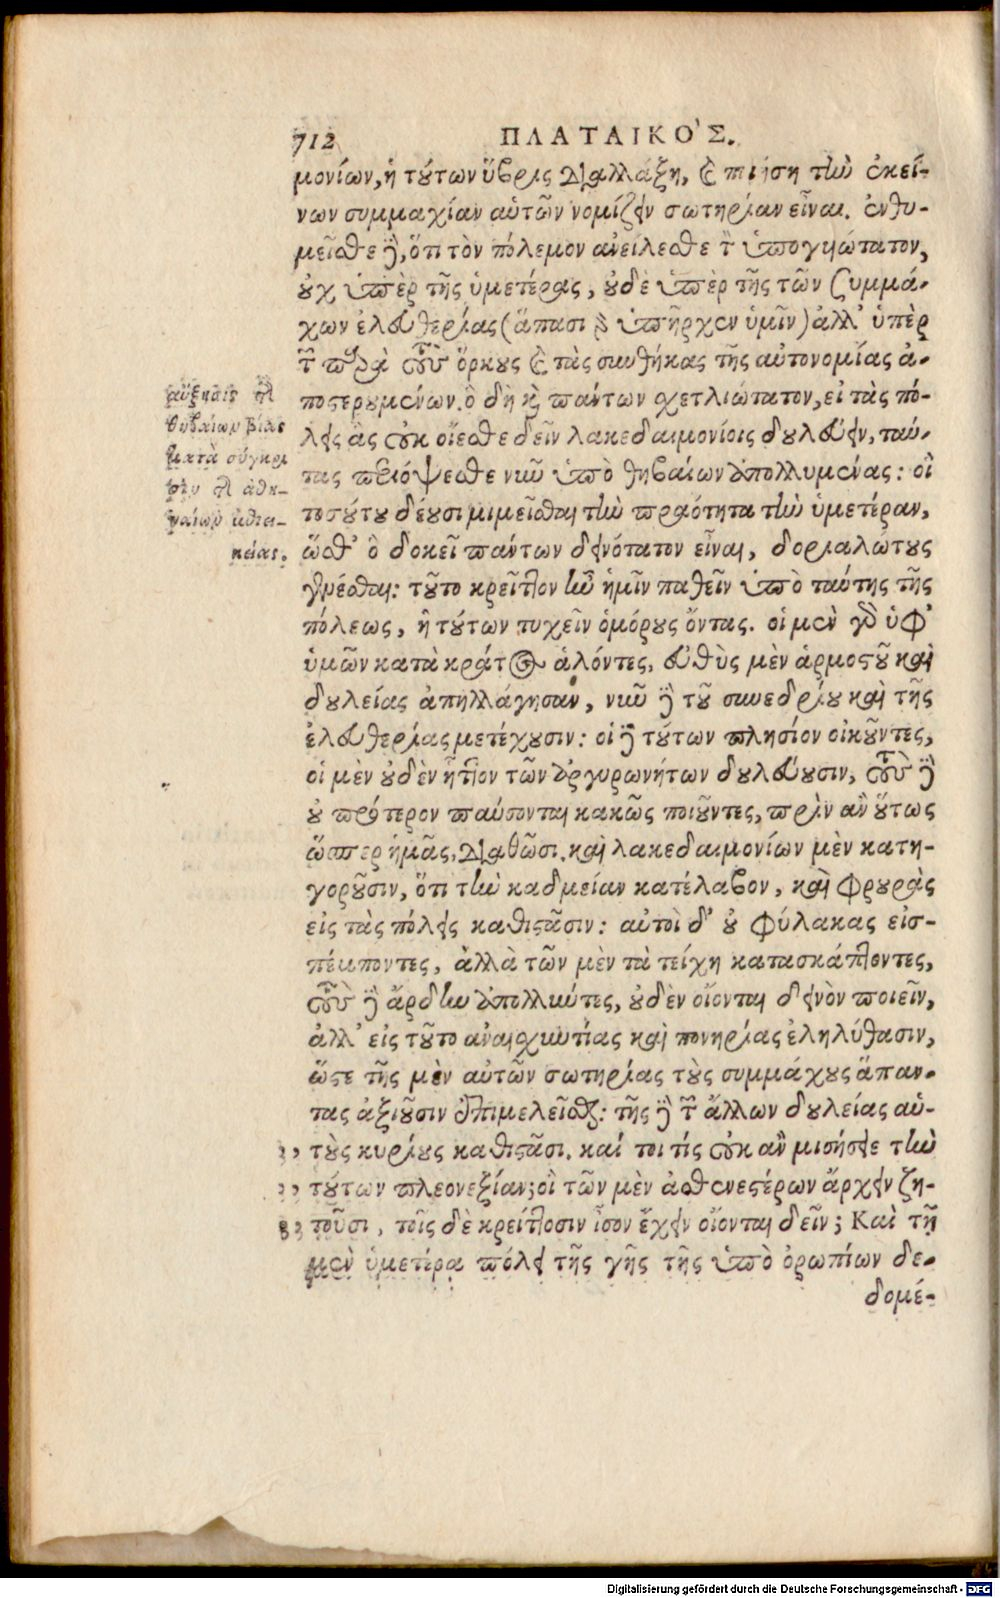 712 ΠΛΑΤΑΙΚΟ'Σ.
μονίων, ἡ τούτων ὕβρις διαλλάξῃ, καὶ ποιήσῃ τὴν ἐκεί-
νων συμμαχίαν αὑτῶν νομίζειν σωτηρίαν εἶναι. ἐνθυ-
μεῖσθε δὲ, ὅτι τὸν πόλεμον ἀνείλεσθε τὸν ὑπογυιώτατον,
οὐχ ὑπὲρ τῆς ὑμετέρας, οὐδὲ ὑπὲρ τῆς τῶν συμμά-
χων ἐλευθερίας (ἅπασι γὰρ ὑπῆρχεν ὑμῖν) ἀλλ' ὑπὲρ
τῶν παρὰ τοὺς ὅρκους καὶ τὰς συνθήκας τῆς αὐτονομίας ἀ-
ποστερουμένων. ὃ δὴ καὶ πάντων σχετλιώτατον, εἰ τὰς πό-
λεις ἃς οὐκ οἴεσθε δεῖν λακεδαιμονίοις δουλεύειν, ταύ-
τας περιόψεσθε νῦν ὑπὸ θηβαίων ἀπολλυμένας: οἳ
τοσούτου δέουσι μιμεῖσθαι τὴν πραότητα τὴν ὑμετέραν,
ὥσθ' ὃ δοκεῖ πάντων δεινότατον εἶναι, δοριαλώτους
γενέσθαι: τοῦτο κρεῖττον ἦν ἡμῖν παθεῖν ὑπὸ ταύτης τῆς
πόλεως, ἢ τούτων τυχεῖν ὁμόρους ὄντας. οἱ μὲν γὰρ ὑφ'
ὑμῶν κατὰ κράτος ἁλόντες, εὐθὺς μὲν ἁρμοστοῦ καὶ
δουλείας ἀπηλλάγησαν, νῦν δὲ τοῦ συνεδρίου καὶ τῆς
ἐλευθερίας μετέχουσιν: οἱ δὲ τούτων πλησίον οἰκοῦντες,
οἱ μὲν οὐδὲν ἧττον τῶν ἀργυρωνήτων δουλεύουσιν, τοὺς δὲ
οὐ πρότερον παύσονται κακῶς ποιοῦντες, πρὶν ἂν οὕτως
ὥσπερ ἡμᾶς, διαθῶσι. καὶ λακεδαιμονίων μὲν κατη-
γοροῦσιν, ὅτι τὴν καδμείαν κατέλαβον, καὶ φρουρὰς
εἰς τὰς πόλεις καθιστᾶσιν: αὐτοὶ δ' οὐ φύλακας εἰσ-
πέμποντες, ἀλλὰ τῶν μὲν τὰ τείχη κατασκάπτοντες,
τοὺς δὲ ἄρδην ἀπολλύντες, οὐδὲν οἴονται δεινὸν ποιεῖν,
ἀλλ' εἰς τοῦτο ἀναισχυντίας καὶ πονηρίας ἐληλύθασιν,
ὥστε τῆς μὲν αὑτῶν σωτηρίας τοὺς συμμάχους ἅπαν-
τας ἀξιοῦσιν ἐπιμελεῖσθαι: τῆς δὲ τῶν ἄλλων δουλείας αὑ-
,, τοὺς κυρίους καθιστᾶσι. καί τοι τίς οὐκ ἂν μισήσειε τὴν
,, τούτων πλεονεξίαν; οἳ τῶν μὲν ἀσθενεστέρων ἄρχειν ζη-
,, τοῦσι, τοῖς δὲ κρείττοσιν ἴσον ἔχειν οἴονται δεῖν; Καὶ τῇ
μὲν ὑμετέρᾳ πόλει τῆς γῆς τῆς ὑπὸ ὀρωπίων δε-
δομέ-
αὔξησις τῆς
θηβαίων βίας
κατὰ σύγκρι
σιν τῆς ἀθη-
ναίων ἐπιει-
κείας.
Digitalisierung gefördert durch die Deutsche Forschungsgemeinschaft - DFG